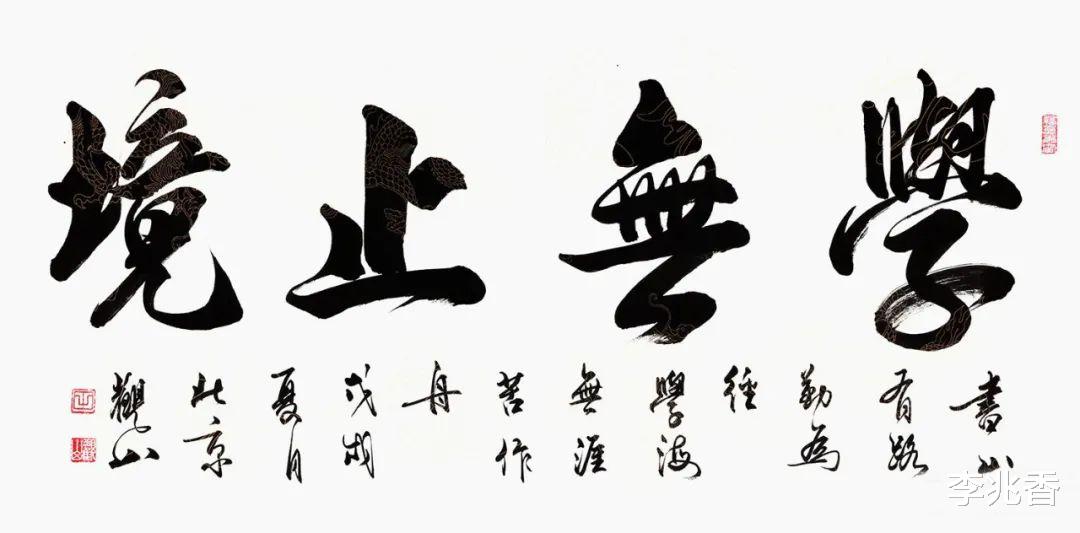 學無止境
書山
有路
勤為
徑
學海
無涯
苦作
舟
戊戌
夏月
北京
觀山
李兆香